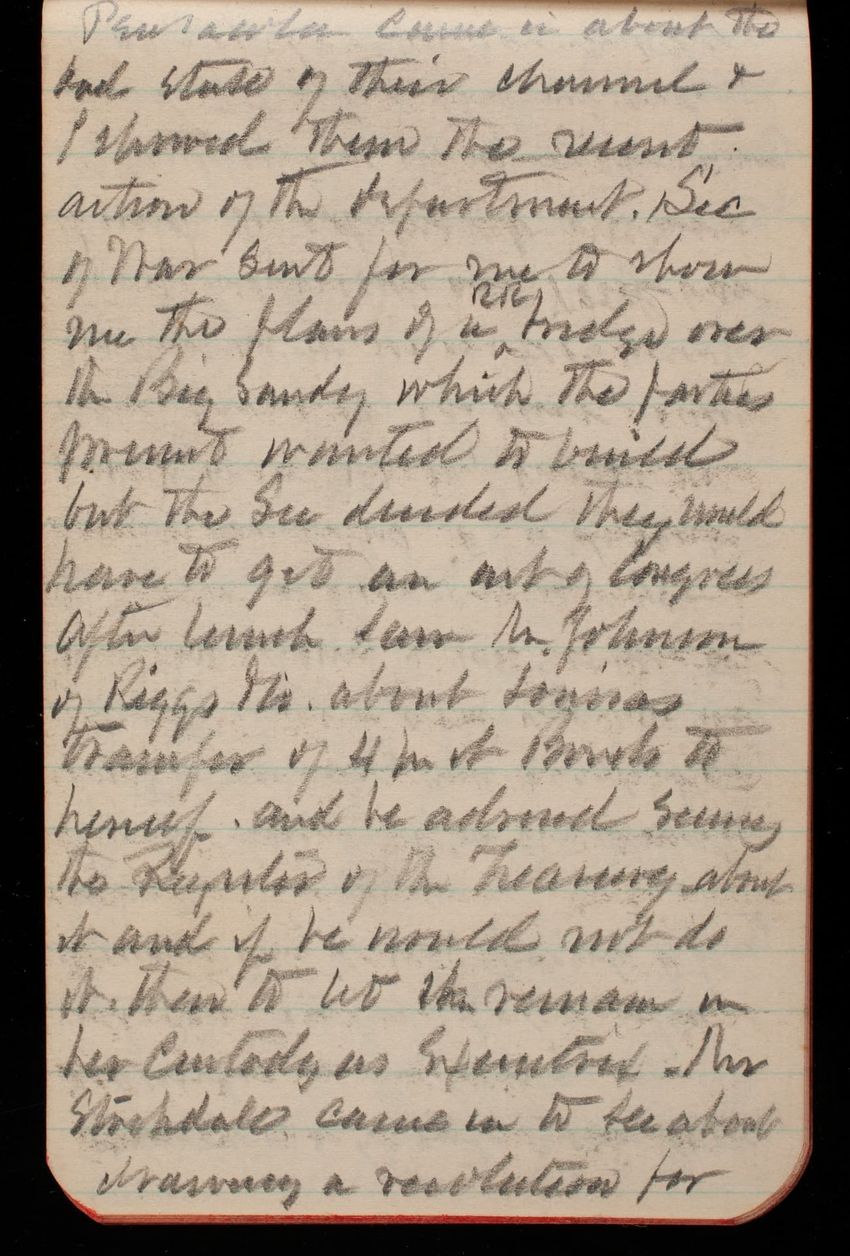 Pensacola came in about the
bad state of their channel &
I showed them the recent
action of the department. Sec
of War sent for me to show
me the plans of a RR bridge over
the Big Sandy which the parties
present wanted to build
but the Sec decided they would
have to get an act of Congress
After lunch saw Mr. Johnson
of Riggs &Co. about Louisas
transfer of 4 pr ct Bonds to
herself. and he advised seeing
the Register of the Treasury about
it and if he would not do
it. then to let them remain in
her custody as Executrix. Mr
Stockdale came in to see about
drawing a resolution for